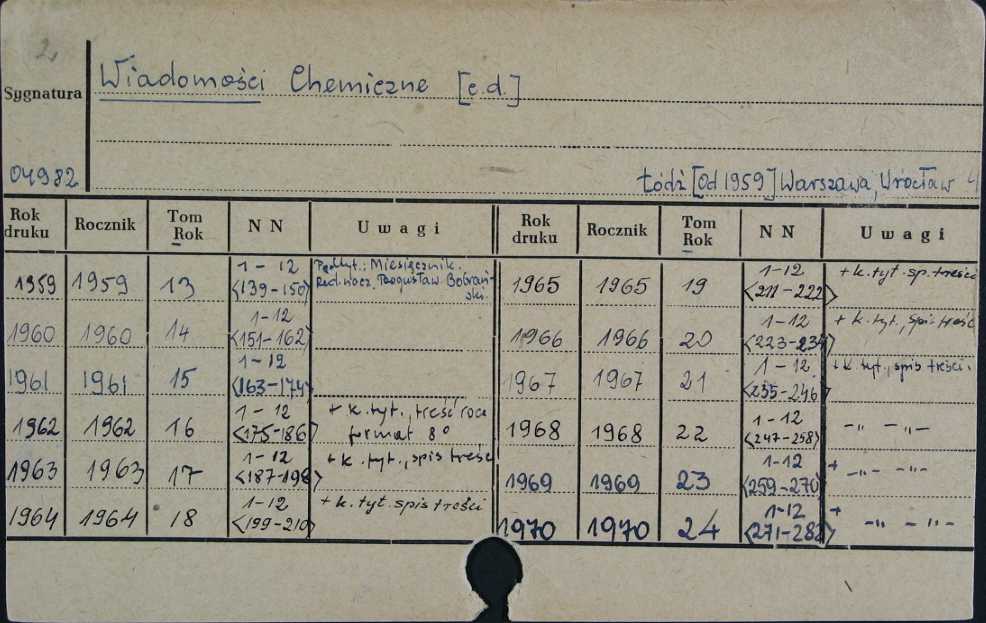 2
Wiadomości Chemiczne [c.d.]
Sygnatura
04982
Łódź [Od 1959] Warszawa, Wrocław 4
Rok druku Rocznik Tom Rok N N Uwagi Rok druku Rocznik Tom Rok N N Uwagi
1959 1959 13 1-12 <139-150> Podtyt.: Miesięcznik. Red. nacz. Bogusław Bobrański
1965 1965 19 1-12 <211-222> + k. tyt. sp. treści
1960 1960 14 1-12 <151-162>
1966 1966 20 1-12 <223-234> + k. tyt., spis treści
1961 1961 15 1-12 <163-174>
1967 1967 21 1-12 <235-246> + k. tyt., spis treści.
1962 1962 16 1-12 <175-186> + k. tyt., treść format 8°
1968 1968 22 1-12 <247-258> -„- -„-
1963 1963 17 1-12 <187-198> + k. tyt., spis treśc
1969 1969 23 1-12 <259-270> + -„- -„-
1964 1964 18 1-12 <199-210> + k. tyt spis treści
1970 1970 24 1-12 <271-282> + -„- -„-